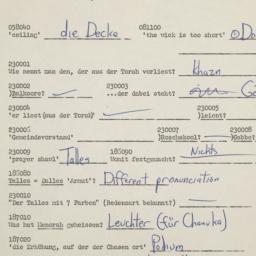 058040 081100
'ceiling' die Decke 'the wick is too short' Do
230001
Wie nennt man den, der aus der Torah vorliest? Khazn
230002 230003
Balkoore? ...der dabei steht? Ga
230004 230005
'er liest (aus der Tora)' )leient?
230006 230007 230008
'Gemeindevorstand' )Roschekool? )Gabbe?
230009 185090
'prayer shawl' Talles Womit festgemacht? Nichts
185080
Talles = Dalles 'Armut'? Different pronunciation
230010
"Der Talles mit 7 Farben" (Bedeutung bekannt?)
187010
Was hat Menorah geheissen? Leuchter (für Chanuka)
187020
'die Erhöhung, auf der der Chasen ort' Podium
187030